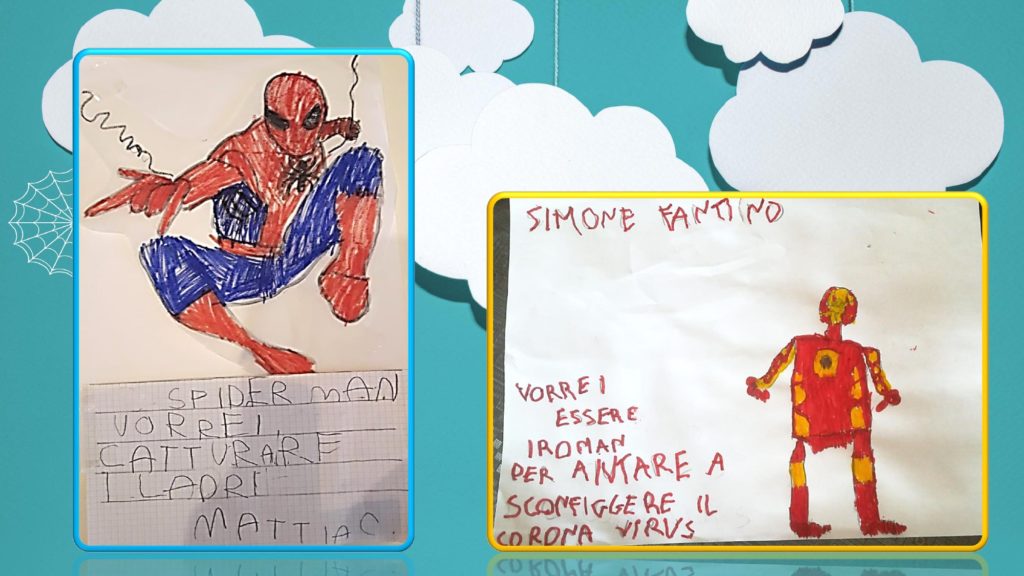 SPIDER MAN
VORREI
CATTURARE
I LADRI
MATTIA C
SIMONE FANTINO
VORREI
ESSERE
IROMAN
PER ANTARE A
SCONFIGGERE IL
CORONA VIRUS